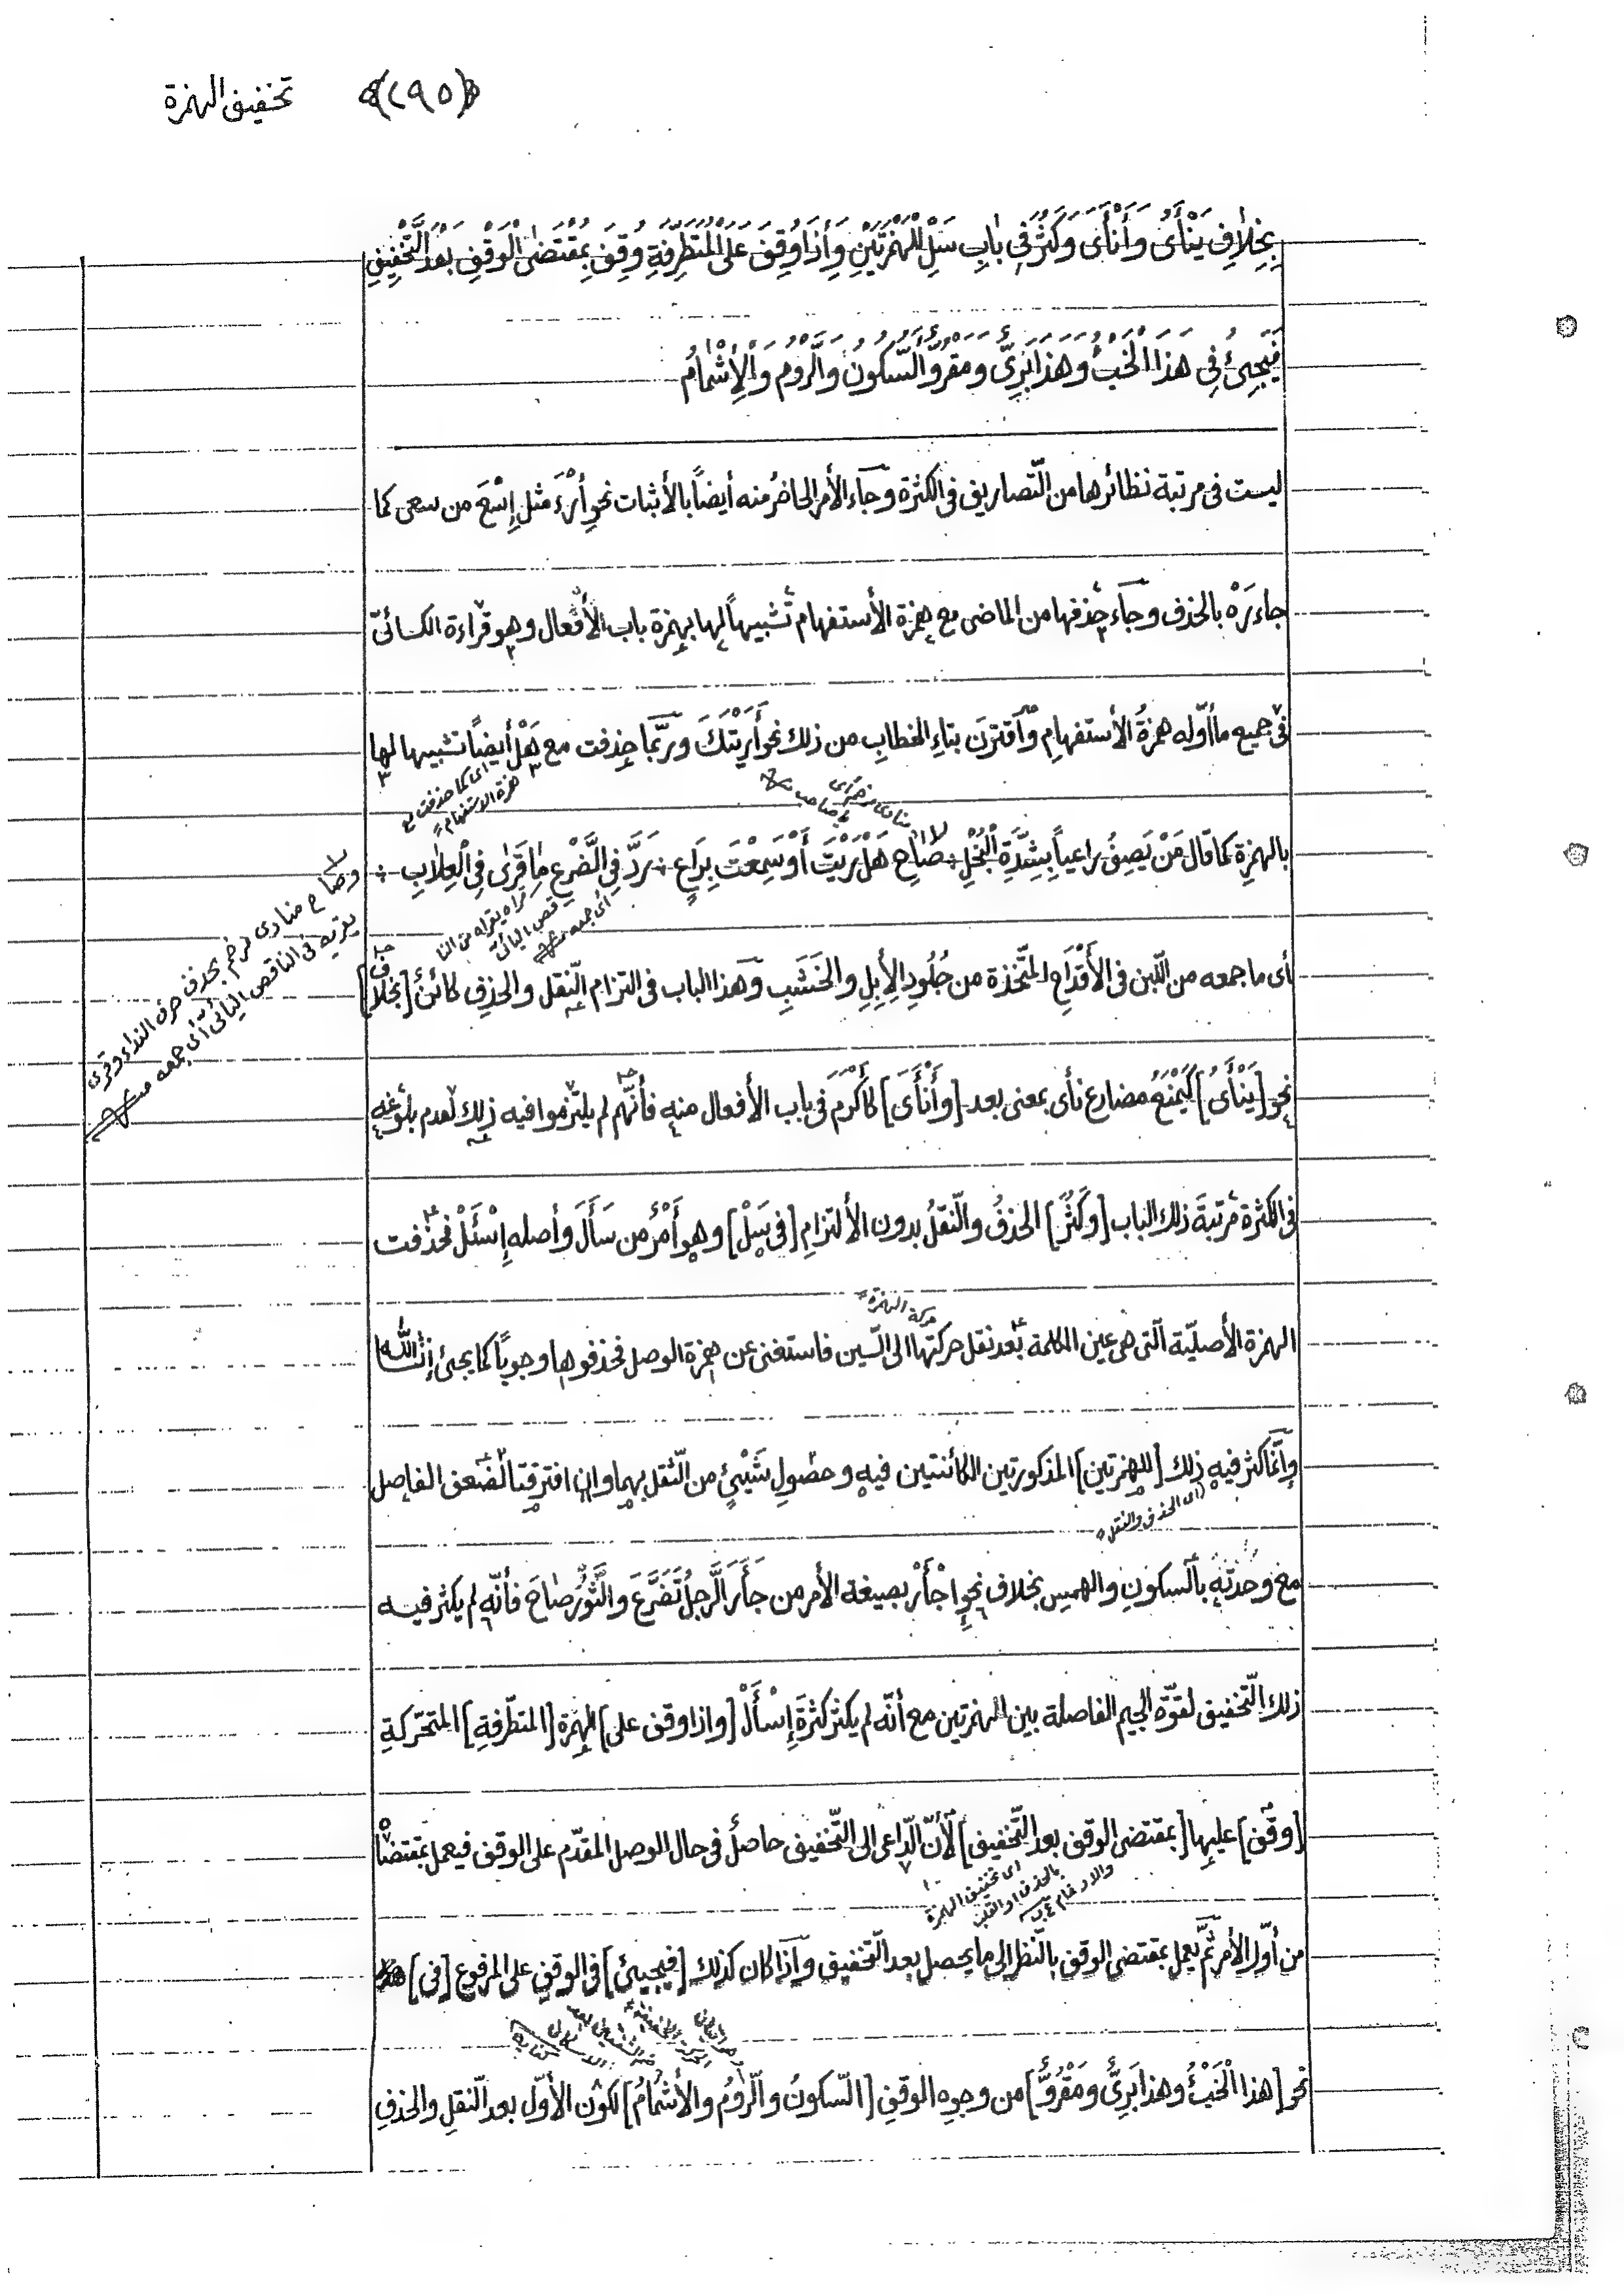 تخفيف الهمزة ﴿٢٩٥﴾
بِخِلَافِ يَنْأَىُ وَأَنْأَىٰ وَكَثُرَ فِي بَابِ سَلْ لِلْهَمْزَتَيْنِ وَإِذَا وُقِفَ عَلَى الْمُتَطَرِّفَةِ وُقِفَ بِمُقْتَضَى الْوَقْفِ بَعْدَ التَّخْفِيفِ
فَيَجِيئُ فِي هَذَا الْخَبُ وَهَذَا بَرِيّ وَمَقْرُوّ السُّكُونُ وَالرَّوْمُ وَالْإِشْمَامُ
ليست فى مرتبة نظائرها من التّصاريف فى الكثرة وجاء الأمر الحاضرُ منه أيضاً بالأثبات نحو أرْءَ مثل إسْعَ من سعى كما
جاء رَهْ بالحذف وجاء حذفها من الماضى مع همزة الأستفهام تشبيهاً لها بهمزة باب الأفعال وهو قراءة الكسائىّ
فى جميع ما أوّله همزةُ الأستفهام وأقترن بتاءِ الخطابِ من ذلك نحو أَرَيْتَكَ وربّما حذفت مع هَلْ أيضاً تشبيها لها
اى كما حذفت مع
همزة الاستفهام
منادى مرخم اى
يا صاحب
بالهمزةِ كما قال مَنْ يَصِفُ راعياً بِشِدَّةِ الْبُخْلِ ؛ صَاحِ هَلْ رَيْتَ أَوْ سَمِعْتَ بِرَاعٍ ؛ رَدَّ فِى الضَّرْعِ مَا قَرَىٰ فِى الْعِلَابِ ؛
قراه يقراه من النا
قص اليائىّ
أى جمعه
وصاح منادى مرخم بحذف حرف النداء وقرى
يقريه فى الناقص اليائى أى جمعه
أى ما جمعه من اللّبن فى الأَقْدَاحِ المتّخذة من جُلُودِ الأِبِلِ والخَشَبِ وهذا الباب فى التزام النّقل والحذفِ كائنٌ [بخلاف]
نحو [يَنْأَىُ] كَيَمْنَعُ مضارع نأى بمعنى بعد [وأَنْأَىٰ] كأَكْرَمَ فى باب الأفعال منه فأنّهم لم يلتزموا فيه ذلك لعدم بلوغه
فى الكثرة مرتبةَ ذلك الباب [وَكَثُرَ] الحذفُ والنّقلُ بدون الألتزامِ [فى سَلْ] وهو أَمْرٌ من سَأَلَ وأصله إِسْئَلْ فحذفت
حركة الهمزة
الهمزة الأصليّة الّتى هى عين الكلمة بعد نقل حركتها الى السّين فاستغنى عن همزة الوصل فحذفوها وجوباً كما يجئ إنشاالله
وإنّما كثر فيه ذلك [للهمزتين] المذكورتين الكائنتين فيه وحصُولِ شَيْئٍ من الثّقل بهما وان افترقتا لضعف الفاصل
(اى الحذف والنقل)
مع وحدته بالسكونِ والهمس بخلاف نحو اجْأَرْ بصيغة الأمر من جَأَرَ الرَّجلُ تَضَرَّعَ والثَّوْرُ صَاحَ فأنّه لم يكثر فيه
ذلك التّخفيف لقوّة الجيم الفاصلة بين الهمزتين مع أنّه لم يكثر كثرةَ إِسْأَلْ [واذا وقف على] الهمزة [المتطرّفةِ] المتحرّكةِ
[وُقِفَ] عليها [بمقتضى الوقف بعد التّخفيف] لأنّ الدّاعى الى التّخفيف حاصلٌ فى حال الوصل المقدّم على الوقف فيعمل بمقتضاه
اى تخفيف الهمزة
بالحذف او القلب
والادغام
من أوّل الأمر ثمّ يعمل بمقتضى الوقف بالنّظر الى ما يحصل بعد التّخفيف وإذا كان كذلك [فيجيئ] فى الوقفِ على المرفوع [فى]
نحو [هذا الْخَبْ وهذا بَرِىّ ومَقْرُوّ] من وجوه الوقفِ [السّكونُ والرَّوْمُ والأشمامُ] لكون الأوّل بعد النّقلِ والحذفِ